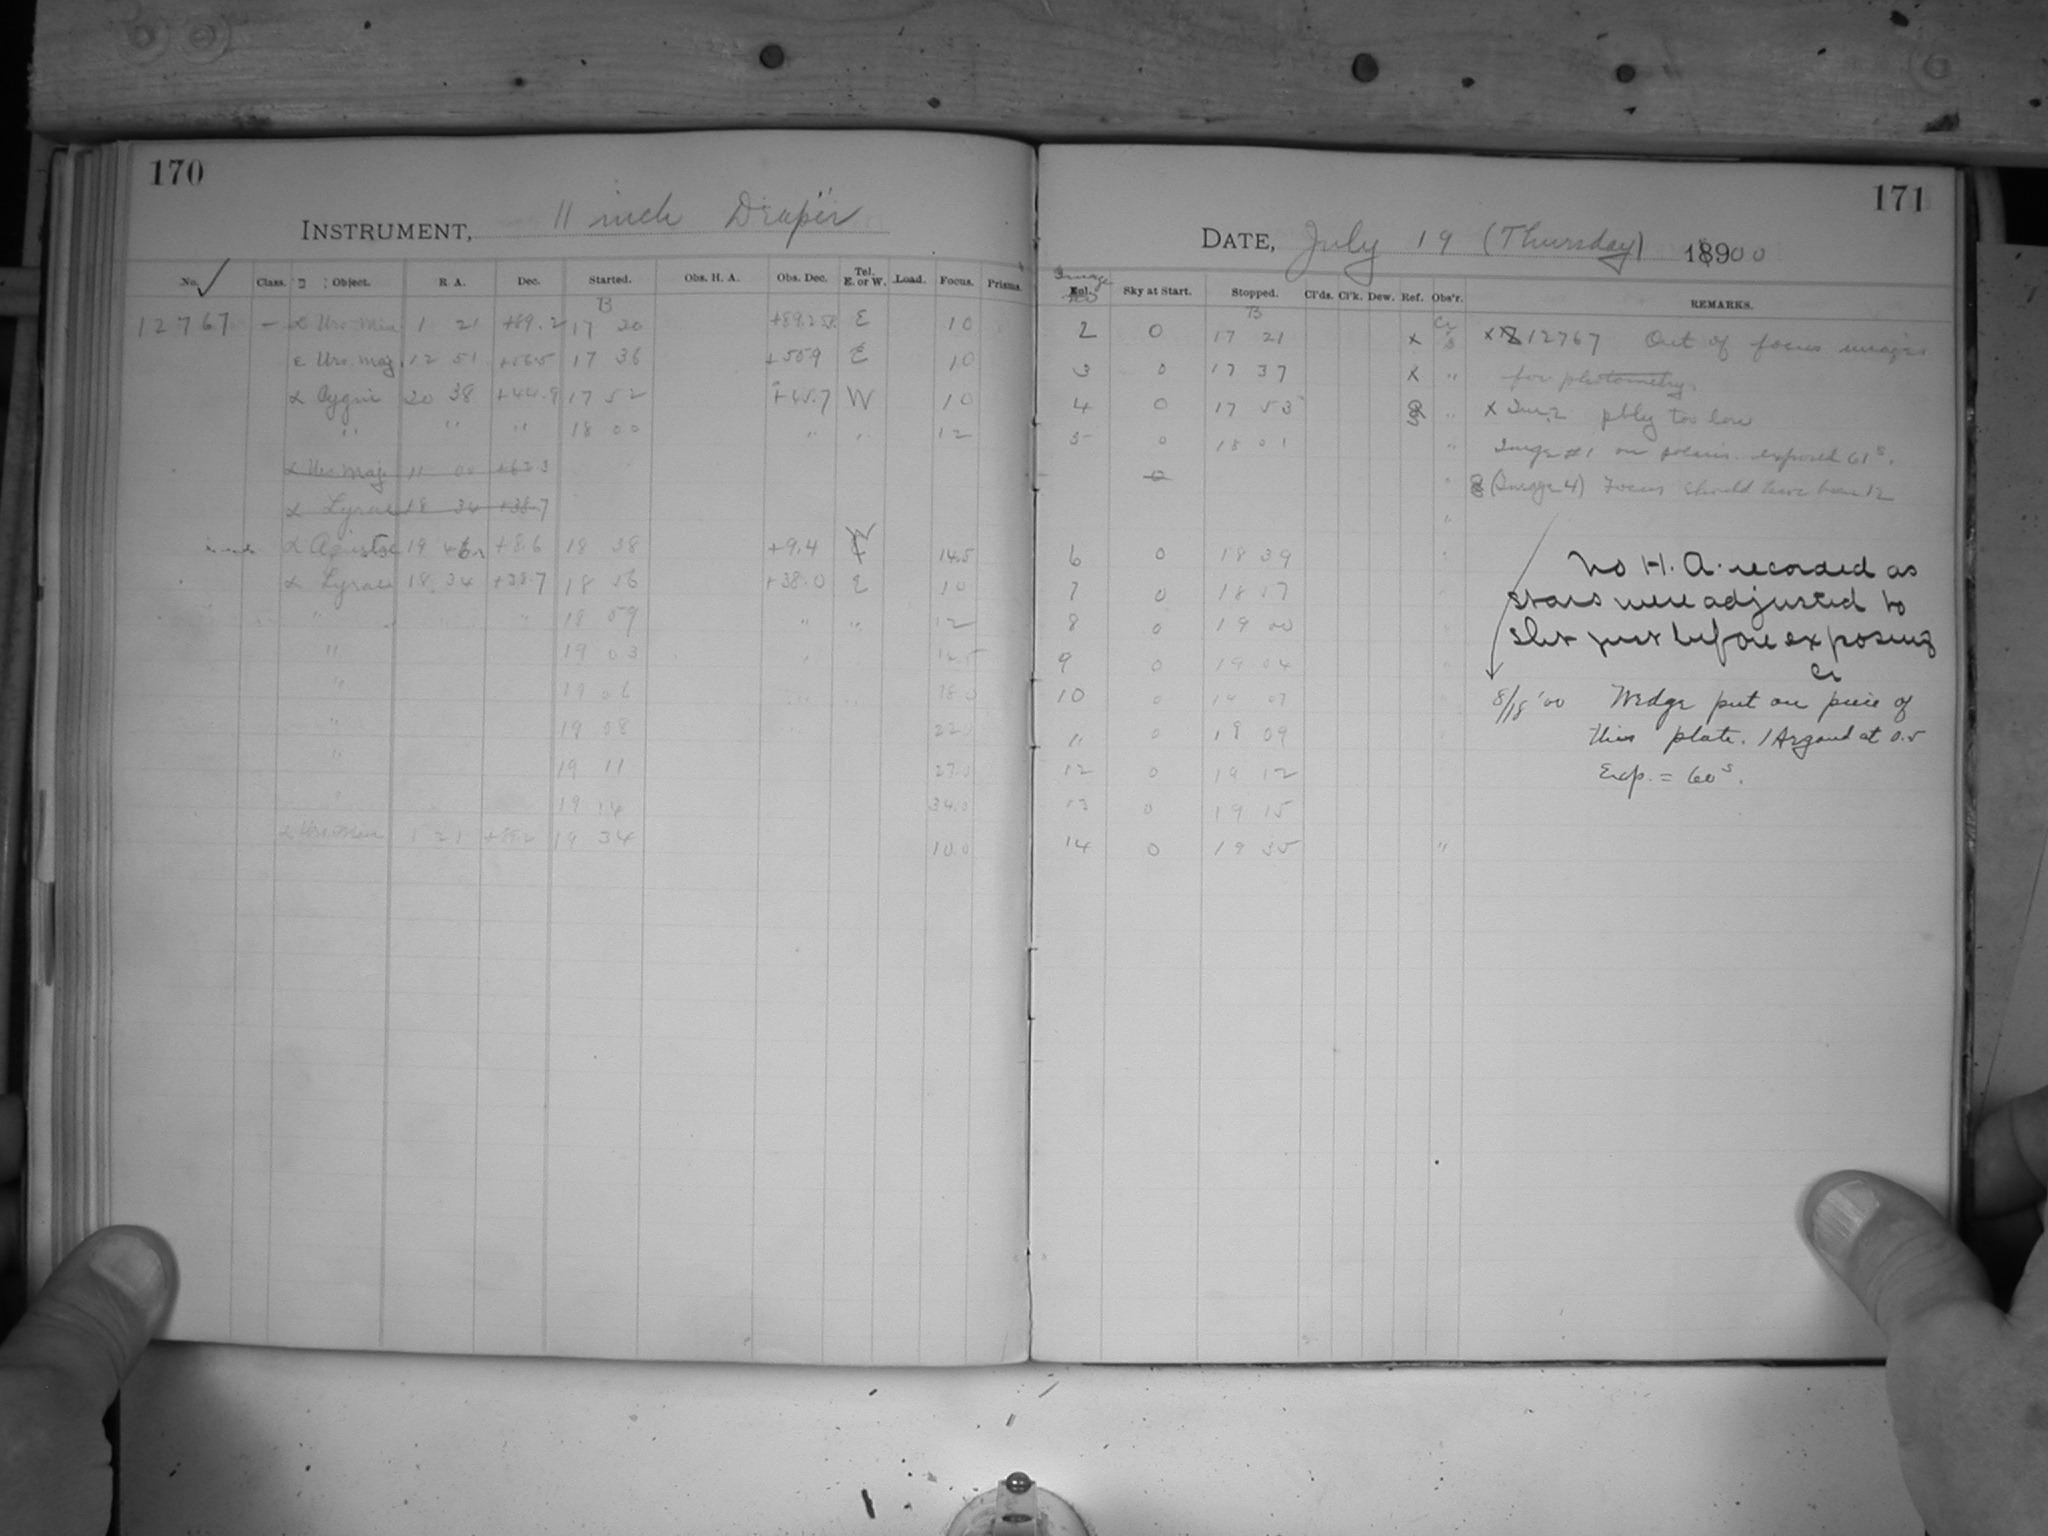 170
INSTRUMENT, 11 inch Draper
No. ✓ Class. Object. R. A. Dec. Started. Obs. H. A. Obs. Dec. Tel. E. or W. Load. Focus. Prisms.
B
12767 — α Urs. Min 1 21 +89.2 17 20 E 10
ε Urs. Maj. 12 51 +56.5 17 36 +55.9 E 10
α Cygni 20 38 +44.9 17 52 +45.7 W 10
" " " 18 00 " " 12
α Urs. Maj. 11 00 +62.3
α Lyrae 18 34 +38.7
19 +8.6 18 38 +9.4 14.5
α Lyrae 18 34 +38.7 18 56 +38.0 E 10
" " 18 59 " " 12
" 19 03 "
" 19 06 " " 18.0
" 19 08 " 22.
" 19 11 27.0
" 19 14 34.0
α Urs. Min 1 21 +89.2 19 34 10.0
171
DATE, July 19 (Thursday) 18900
Image
No. Sky at Start. Stopped. Cl'ds. Cl'k. Dew. Ref. Obs'r. REMARKS.
B
2 0 17 21 x x 12767 Out of focus images
3 0 17 37 x " for photometry.
4 0 17 53 " x Im. 2 pbly too low
5 0 18 01 " Image #1 on polaris exposed 61s.
0 " (Image 4) Focus should have been 12
"
6 0 18 39 "
No H. A. recorded as
7 0 18 57
stars were adjusted to
8 0 19 00
slit just before exposing
9 0 19 04
Cr
10 0 19 07 8/18 '00 Wedge put on piece of
11 0 19 09 this plate. 1 Argand at 0.5
12 0 19 12 Exp. = 60s.
13 0 19 15
14 0 19 35 "